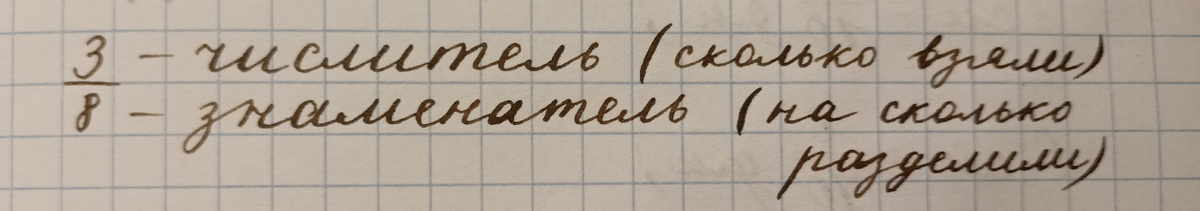 3 – числитель (сколько взяли)
8 – знаменатель (на сколько
разделили)